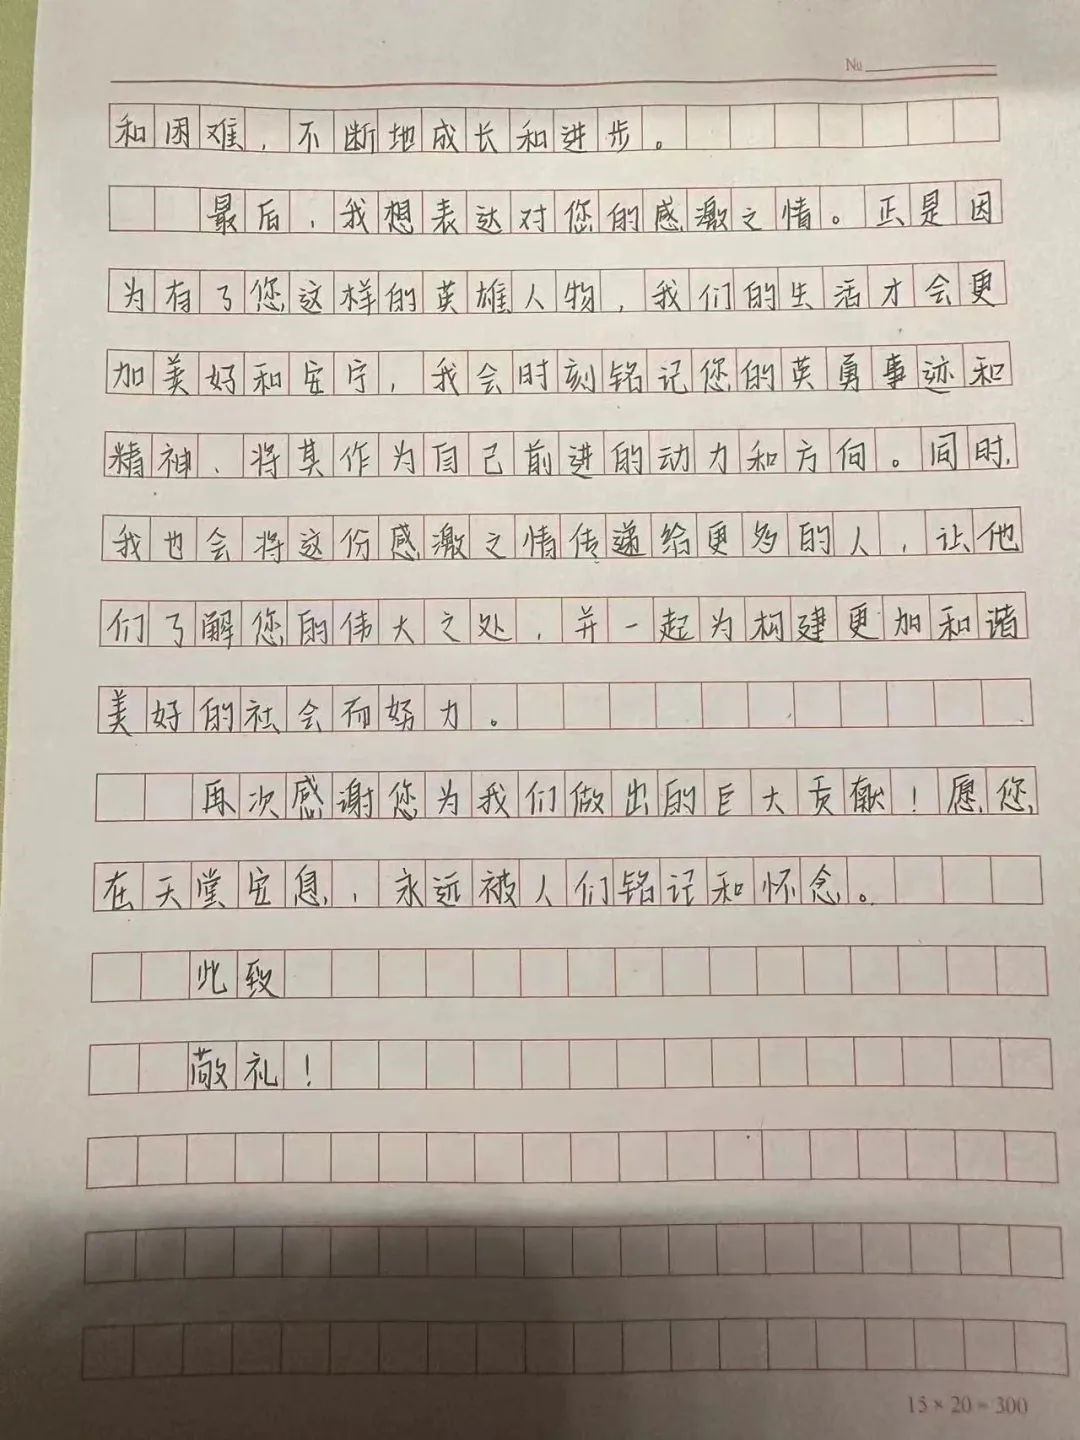 №
和困难，不断地成长和进步。
最后，我想表达对您的感激之情。正是因
为有了您这样的英雄人物，我们的生活才会更
加美好和安宁，我会时刻铭记您的英勇事迹和
精神、将其作为自己前进的动力和方向。同时，
我也会将这份感激之情传递给更多的人，让他
们了解您的伟大之处，并一起为构建更加和谐
美好的社会而努力。
再次感谢您为我们做出的巨大贡献！愿您
在天堂安息，永远被人们铭记和怀念。
此致
敬礼！
15×20=300